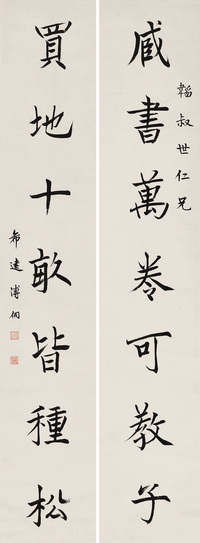 韜叔世仁兄
臧書萬卷可教子
買地十畝皆種松
希遠溥侗